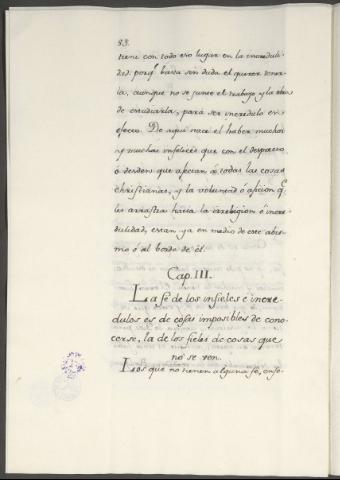 83.
tiene con todo eso lugar en la increduli-
dad: porq.e basta sin duda el querer tener-
la, aunque no se junte el trabajo y la obra
de estudiarla, para ser incredulo en
efecto. De aqui nace el haber muchos
y muchas infelices que con el desprecio
o desden que afectan á todas las cosas
christianas, y la voluntad ó aficion q.e
les arrastra hacia la irreligion é incre-
dulidad, estan ya en medio de este abis-
mo ó al borde de él.
Cap. III.
La fé de los infieles e incre-
dulos es de cosas imposibles de cono-
cerse, la de los fieles de cosas que
no se ven.
Los que no tienen alguna fé, enfe-